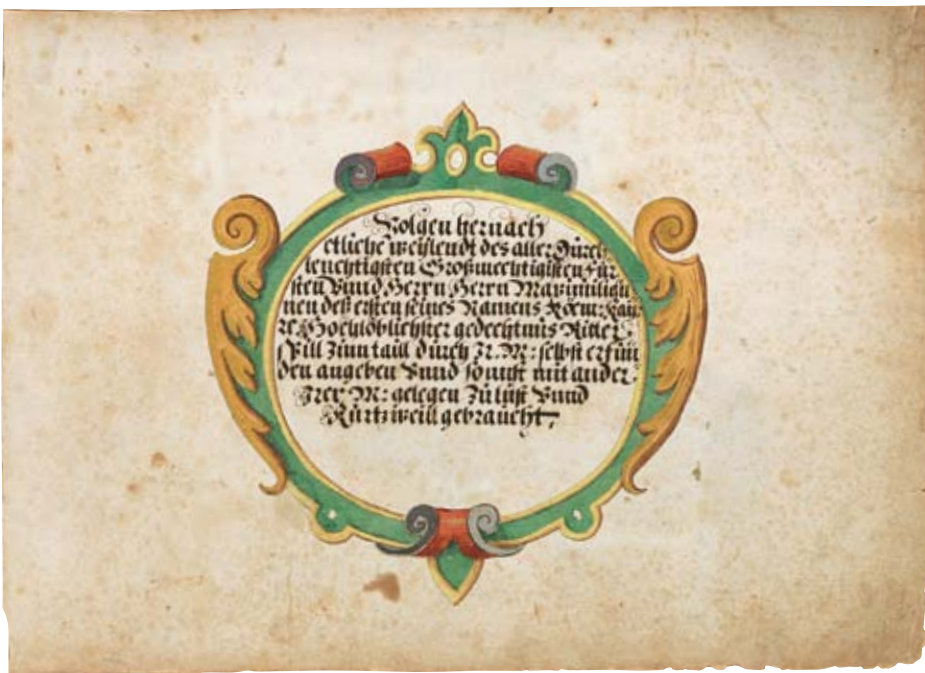 Volgen hernach
etliche weylendt des aller Durch
leuchtigisten Großmechtigisten Für
sten Vnnd Herrn Herrn Maximilia
nen deß ersten seines Namens Röem: Kay
re Hochlöblichster gedechtnus Ritter
Spill Zum taill durch Ir. M: selbst erfun
den angeben Vnnd sonnst mit ander
Irer M: gelegen Zu lust Vnnd
Kurtzweill gebraucht,